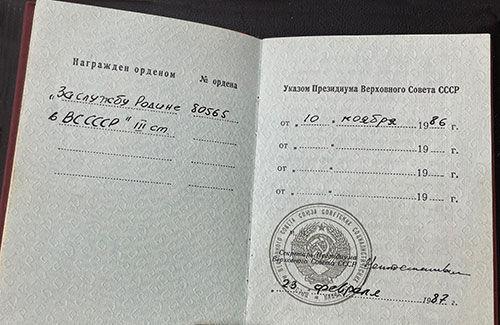 Награжден орденом № ордена
„За службу Родине 80565
в ВС СССР" III ст.
Указом Президиума Верховного Совета СССР
от „ 10 „ ноября 1986 г.
от „ " 19 г.
от „ " 19 г.
от „ " 19 г.
Секретарь Президиума
Верховного Совета СССР
„ 23 „ февраля 1987 г.